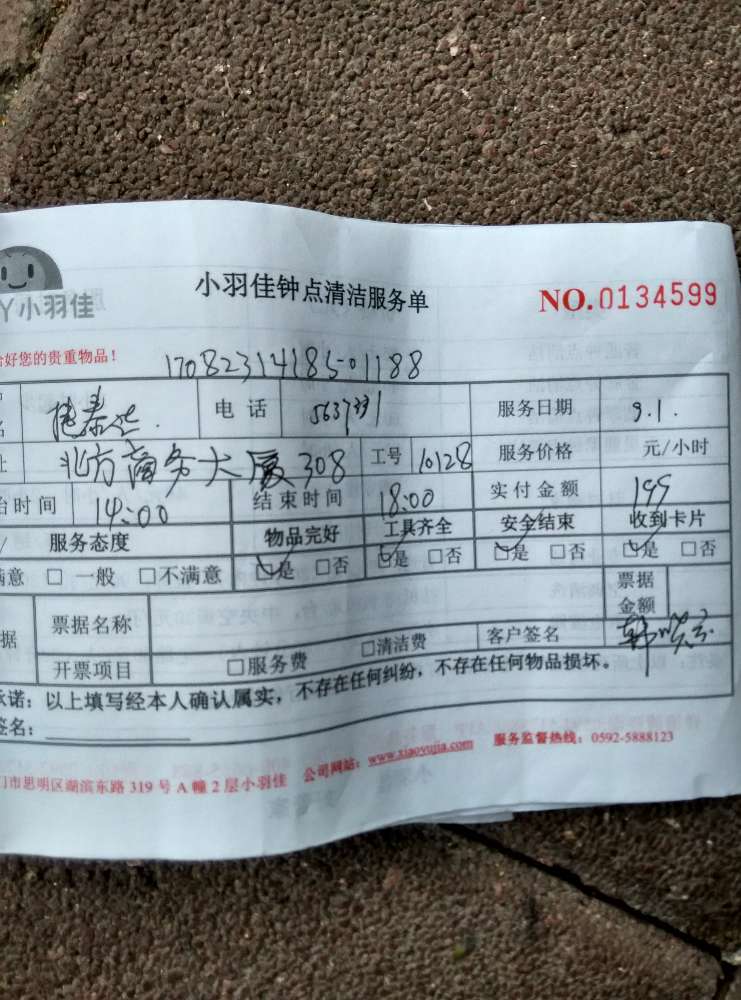 小羽佳钟点清洁服务单
NO.0134599
Y小羽佳
好您的贵重物品！
1708231418501188
名 电话 5637331 服务日期 9.1.
址 北方商务大厦308 工号 10128 服务价格 元/小时
时间 14:00 结束时间 18:00 实付金额 199
服务态度 物品完好 工具齐全 安全结束 收到卡片
满意 □ 一般 □不满意 □是 □否 □是 □否 □是 □否 □是 □否
据 票据名称 票据金额
开票项目 □服务费 □清洁费 客户签名
承诺：以上填写经本人确认属实，不存在任何纠纷，不存在任何物品损坏。
签名：
门市思明区湖滨东路 319 号 A 幢 2 层小羽佳 公司网站：www.xiaoyujia.com 服务监督热线：0592-5888123